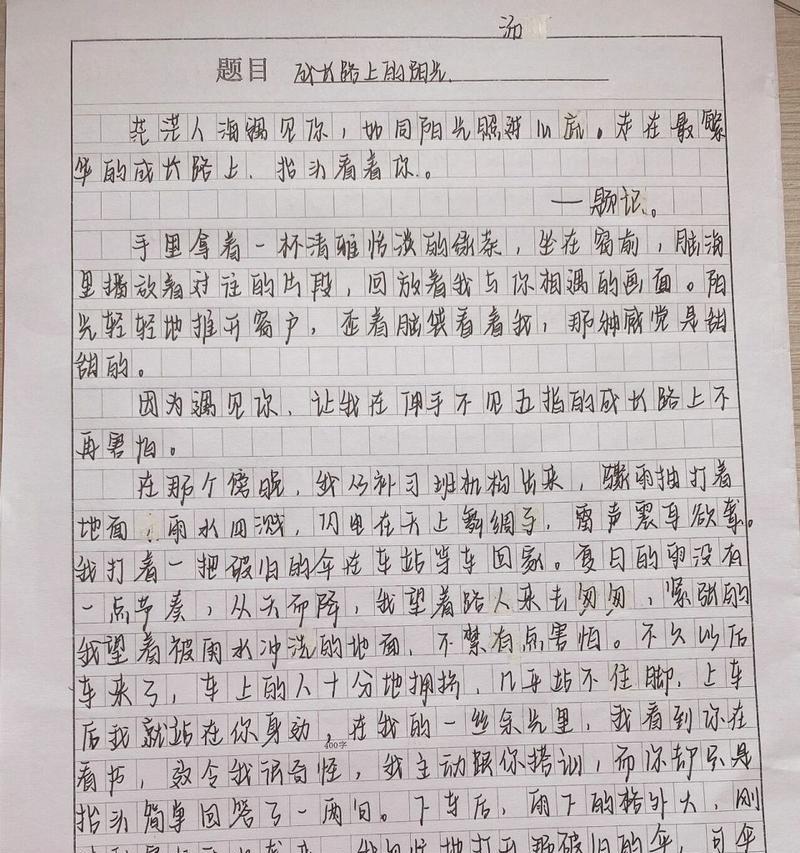 汤
题目 成长路上的阳光
茫茫人海遇见你，如同阳光照进心底。走在最繁
华的成长路上、抬头看着你。
——题记。
手里拿着一杯清雅恬淡的绿茶，坐在窗前，脑海
里播放着过往的片段，回放着我与你相遇的画面。阳
光轻轻地推开窗户，歪着脑袋看着我，那种感觉是甜
甜的。
因为遇见你、让我在伸手不见五指的成长路上不
再害怕。
在那个傍晚，我从补习班机构出来，骤雨抽打着
地面，雨水四溅，闪电在天上舞绸子，雷声震耳欲聋。
我打着一把破旧的伞在车站等车回家。夏日的雨没有
一点节奏，从天而降，我望着路人来去匆匆，紧张的
我望着被雨水冲洗的地面，不禁有点害怕。不久以后
车来了，车上的人十分地拥挤，几乎站不住脚，上车
后我就站在你身边，在我的一丝余光里，我看到你在
看书，这令我很奇怪，我主动跟你搭讪，而你却只是
400字
抬头简单回答了一两句。下车后，雨下的格外大，刚
我 地打开那破旧的伞，可伞